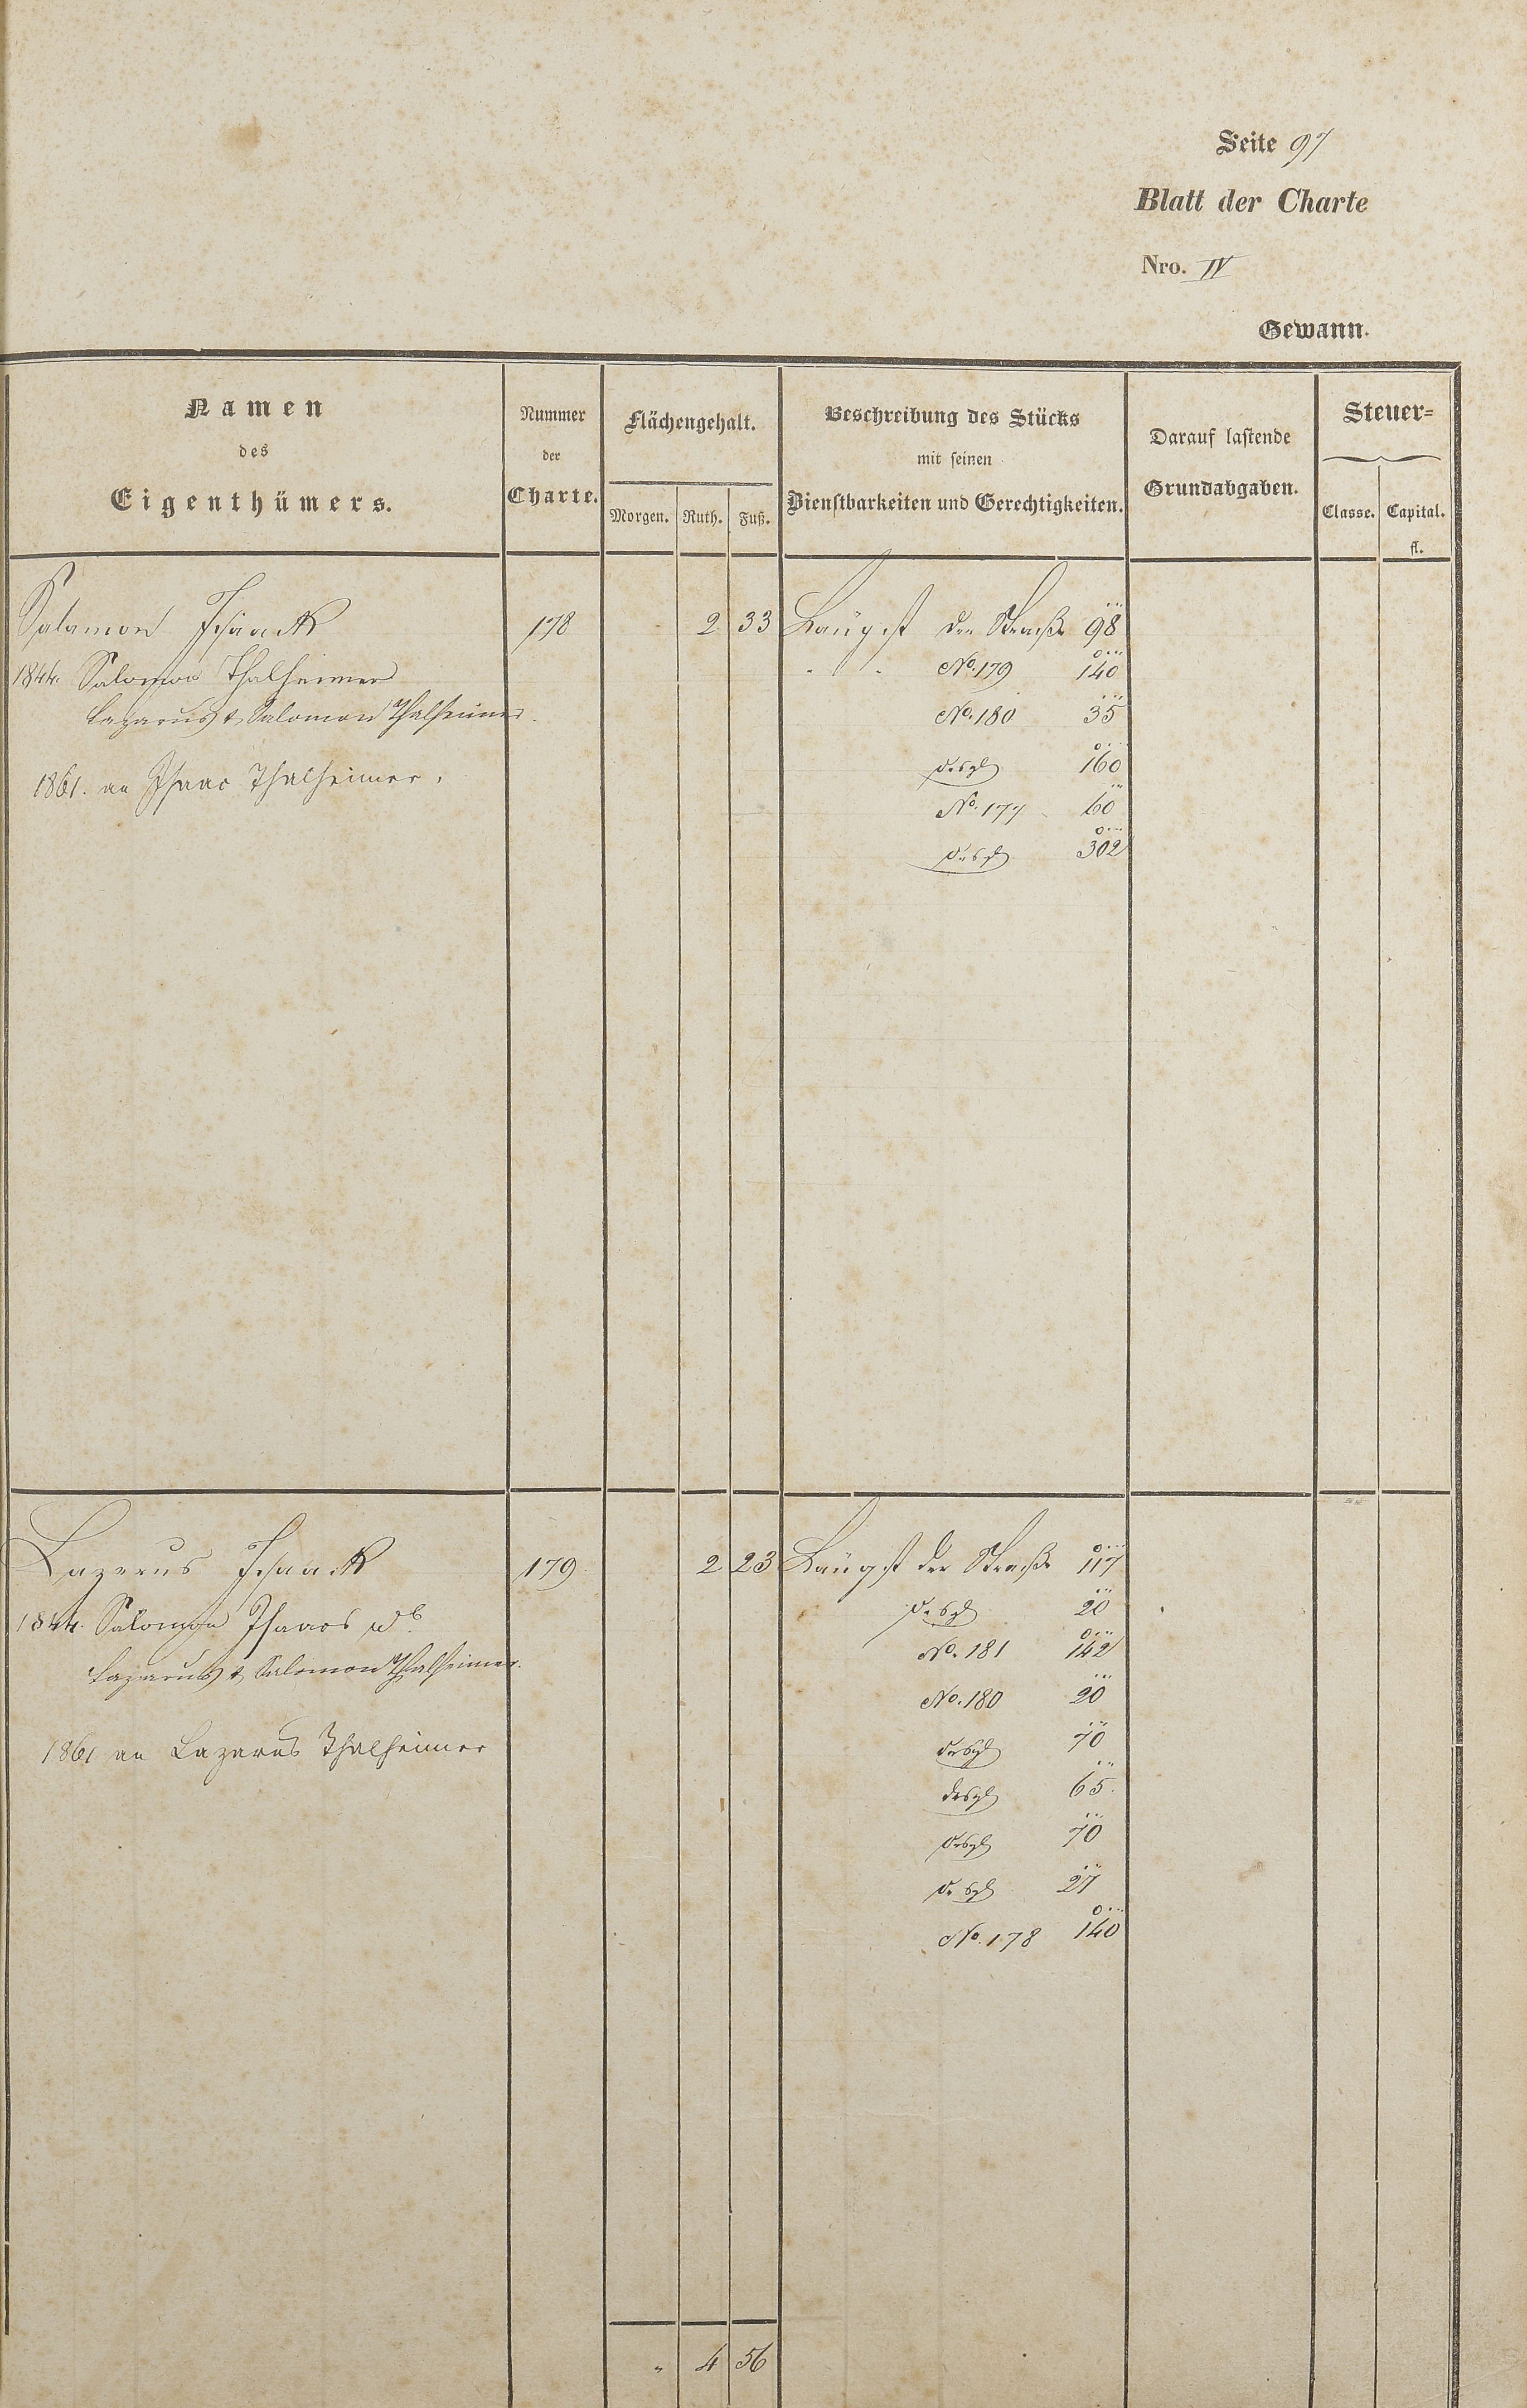 Seite 97
Blatt der Charte
Nro. IV
Gewann.
Namen
des
Eigenthümers.
Nummer
der
Charte.
Flächengehalt.
Morgen. Ruth. Fuß.
Beschreibung des Stücks
mit seinen
Dienstbarkeiten und Gerechtigkeiten.
Darauf lastende
Grundabgaben.
Steuer=
Classe. Capital.
fl.
Salamon Isaack 178 2 33 Längst der Straße 98
1844. Salomon Thalheimer No. 179 140
Lazarus & Salomon Thalheimer. No. 180 35
desgl 160
1861. an Isaac Thalheimer. No. 177 60
desgl 302
Lazerus Isaack 179 2 23 Längst der Straße 117
1844. Salomon Isaacs desgl 20
Lazarus & Salomon Thalheimer. No. 181 142
No. 180 20
1861 an Lazarus Thalheimer desgl 70
desgl 65
desgl 70
desgl 27
No. 178 140
" 4 56